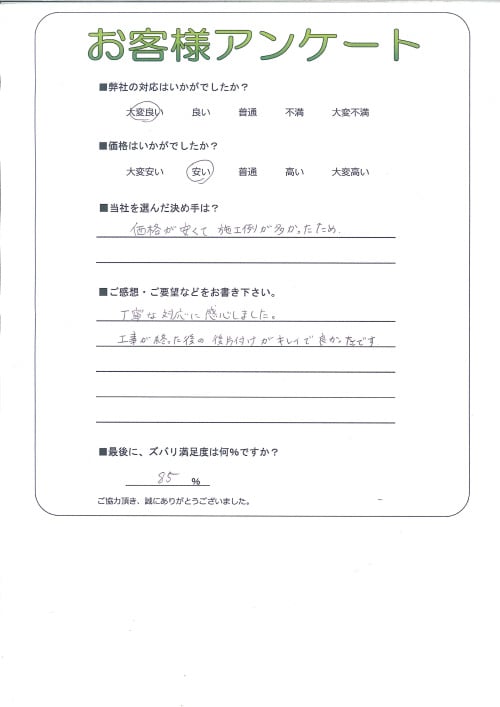 お客様アンケート
■弊社の対応はいかがでしたか？
大変良い 良い 普通 不満 大変不満
■価格はいかがでしたか？
大変安い 安い 普通 高い 大変高い
■当社を選んだ決め手は？
価格が安くて 施工例が多かったため.
■ご感想・ご要望などをお書き下さい。
丁寧な対応に感心しました。
工事が終った後の 後片付けがキレイで良かったです
■最後に、ズバリ満足度は何%ですか？
85 %
ご協力頂き、誠にありがとうございました。